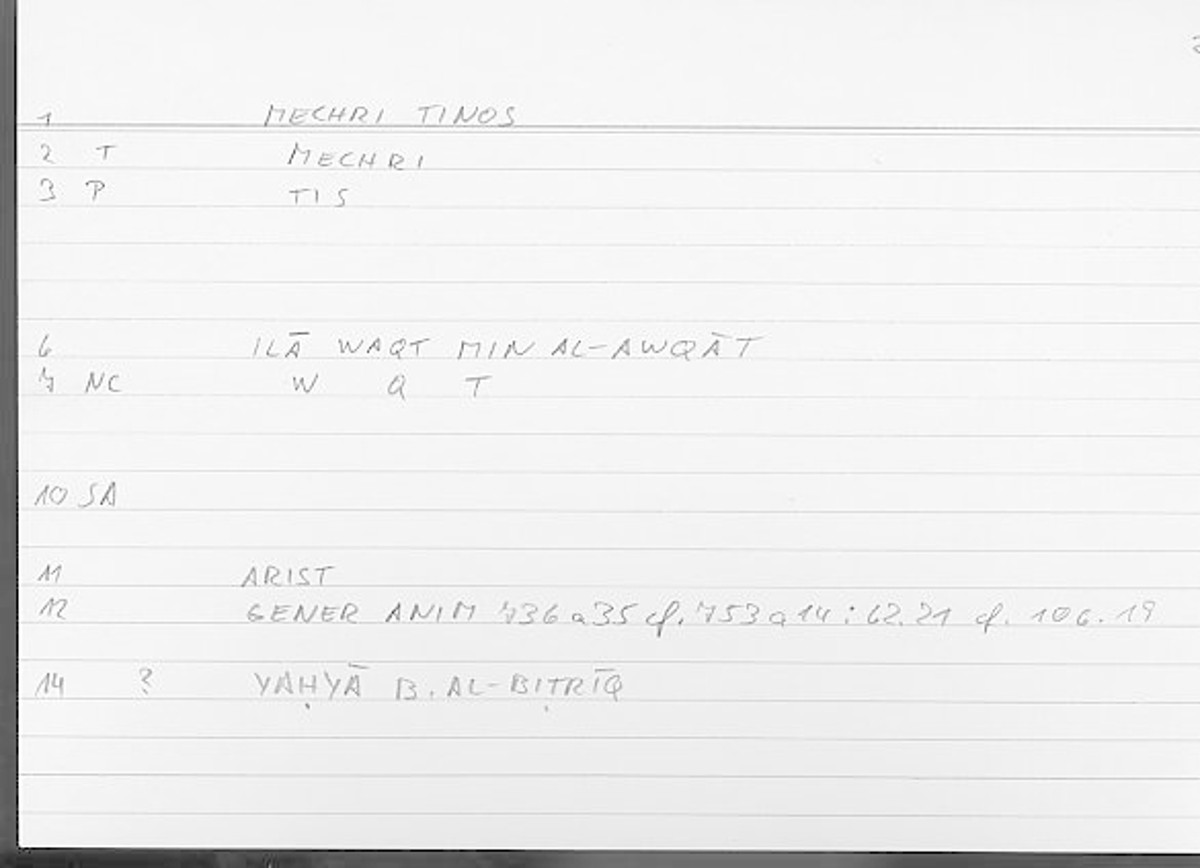 1 MECHRI TINOS
2 T MECHRI
3 P TIS
6 ILĀ WAQT MIN AL-AWQĀT
7 NC W Q T
10 SA
11 ARIST
12 GENER ANIM 736a35 cf. 753a14 : 62.21 cf. 106.19
14 ? YAḤYĀ B. AL-BIṬRĪQ